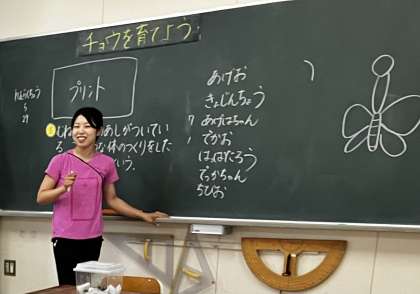 チョウを育てよう
れんらくちょう
5
29
プリント
あしがついてい
体のつくりをした
いう。
あげお
きょじんちょう
7 あげはちゃん
1 でかお
はねたろう
でっかちゃん
ちびお